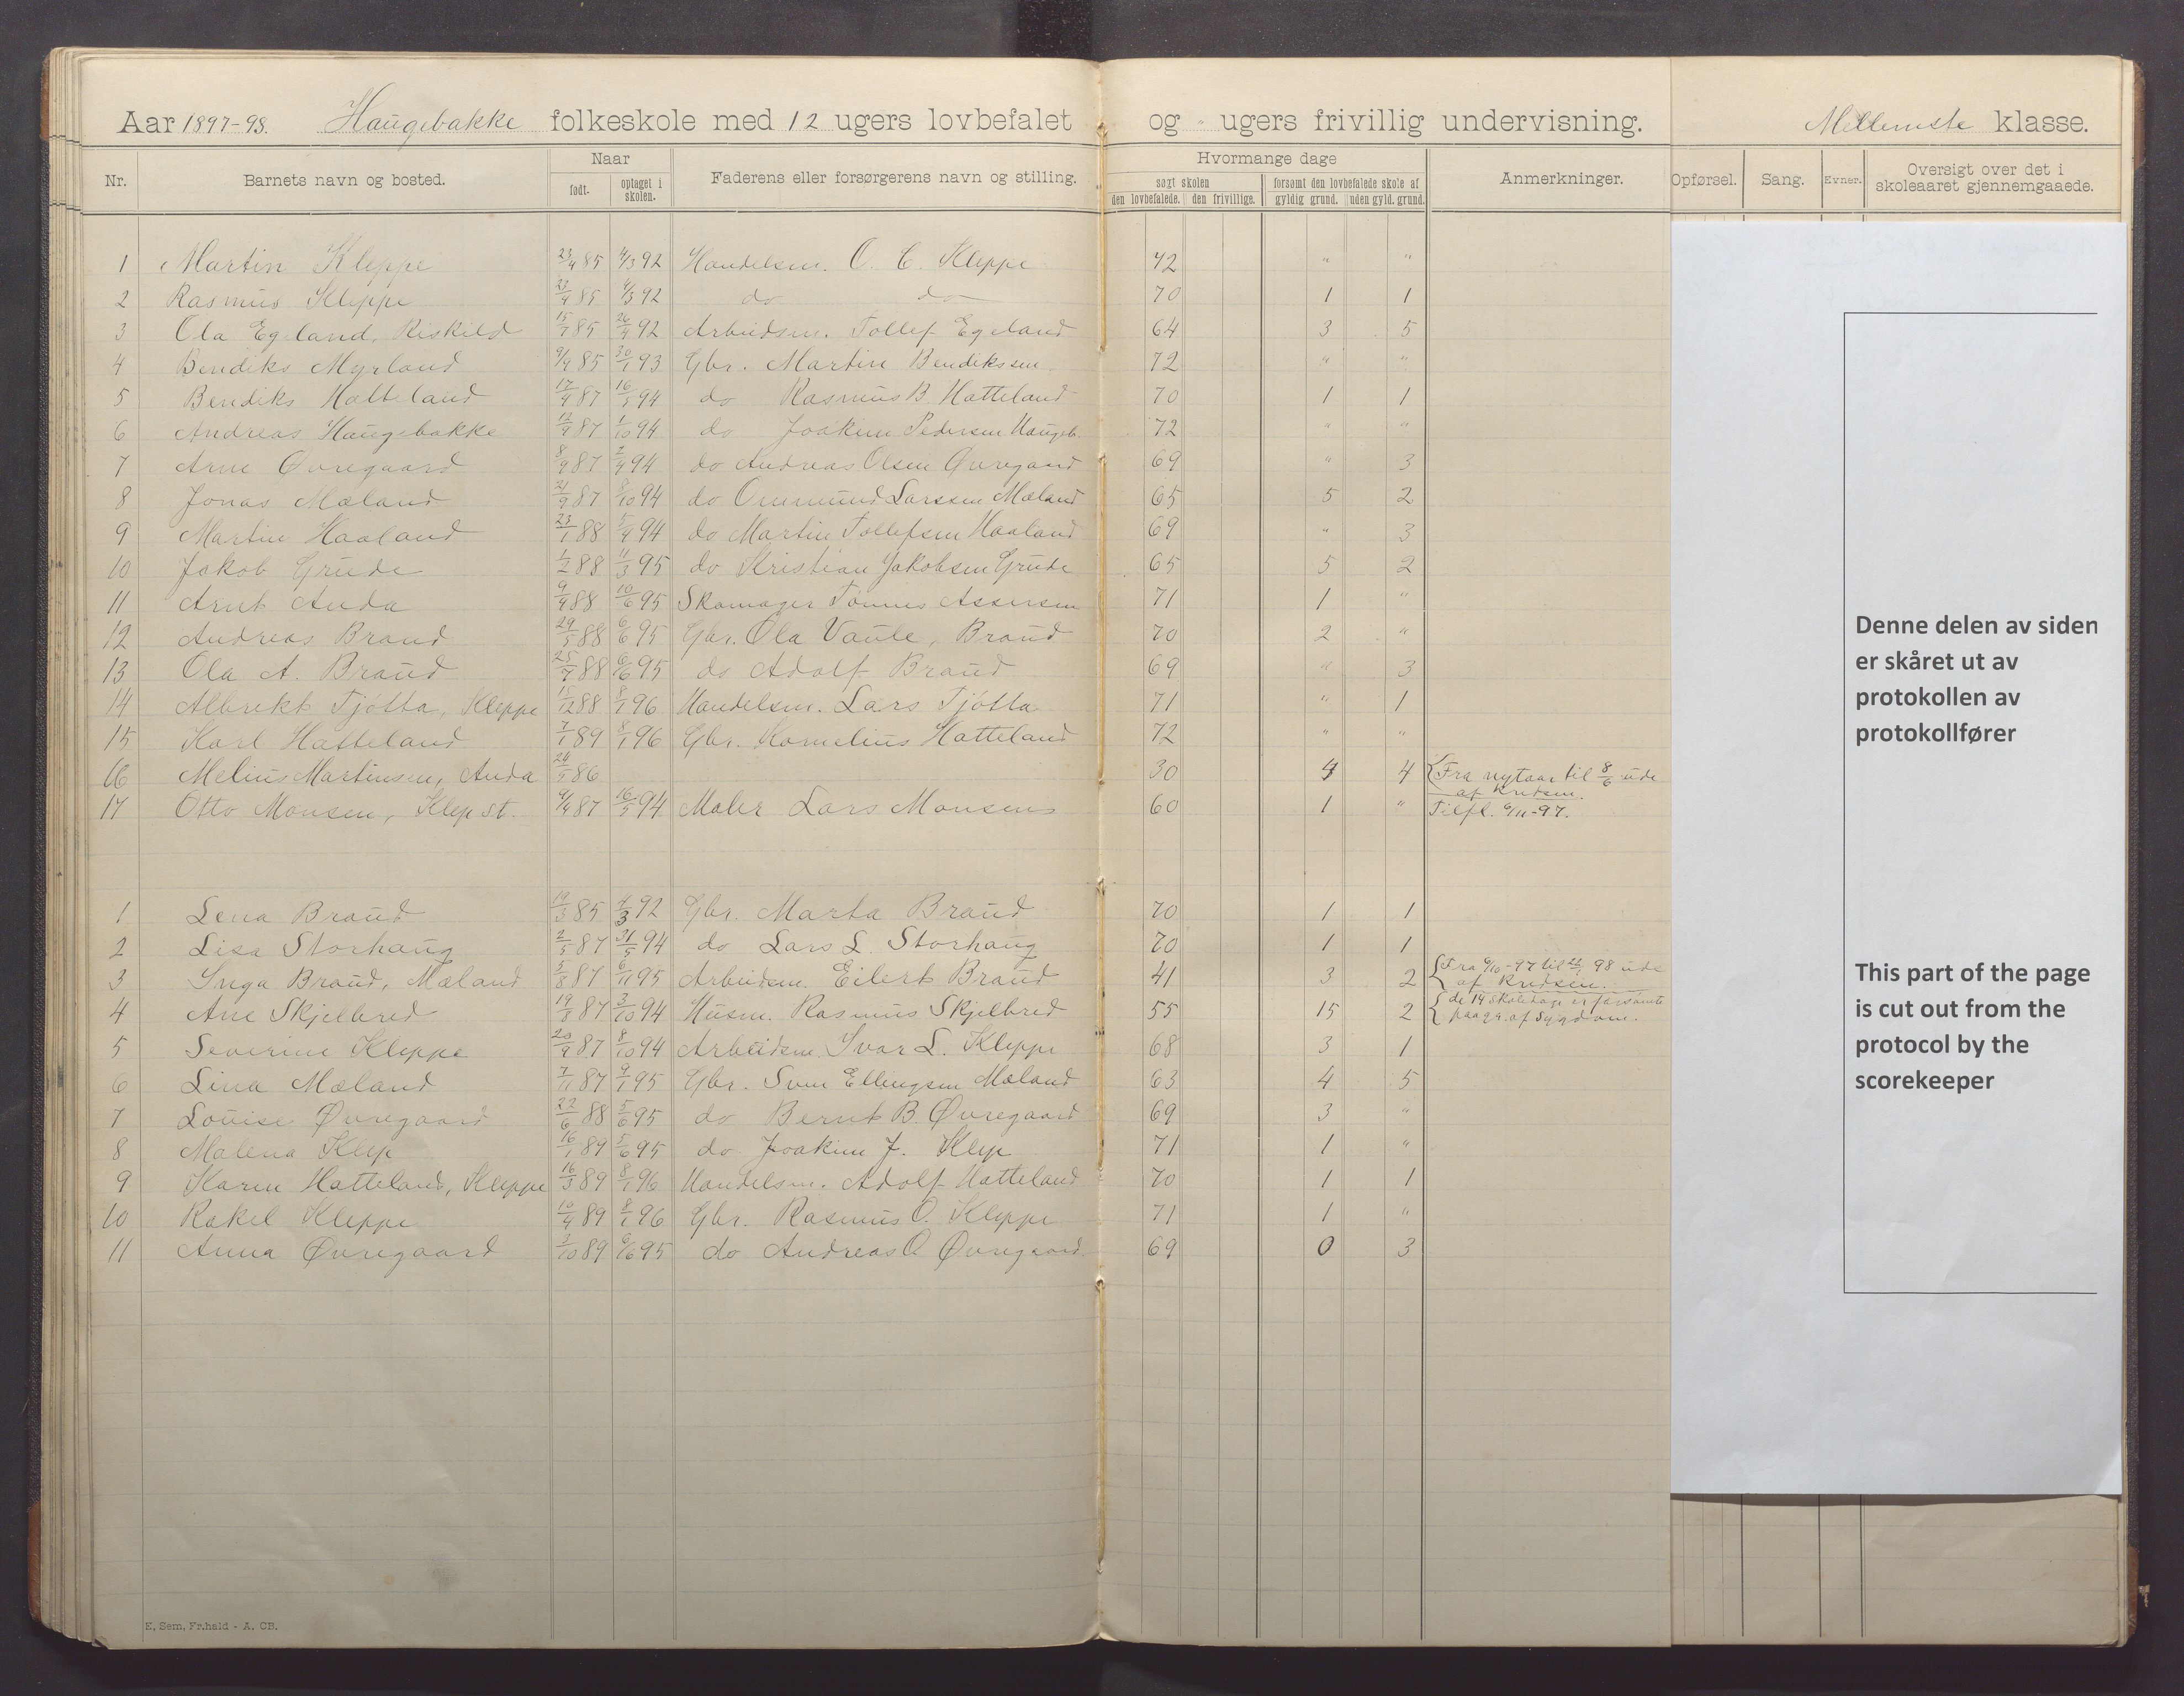 Aar 1897-98. Haugebakke folkeskole med 12 ugers lovbefalet og " ugers frivillig undervisning. Mellemste klasse.
Nr. Barnets navn og bosted. Naar født. optaget i skolen. Faderens eller forsørgerens navn og stilling. Hvormange dage søgt skolen den lovbefalede. den frivillige. forsømt den lovbefalede skole af gyldig grund. uden gyld. grund. Anmerkninger. Opførsel. Sang. Evner. Oversigt over det i skoleaaret gjennemgaaede.
1 Martin Kleppe 23/4 85 4/3 92 Handelsm. O. C. Kleppe 72 " "
2 Rasmus Kleppe 23/4 85 4/3 92 do do 70 1 1
3 Ola Egeland, Riskild 15/7 85 26/4 92 Arbeidsm. Tollef Egeland 64 3 5
4 Bendiks Myrland 9/9 85 30/1 93 Gbr. Martin Bendikssen 72 " "
5 Bendiks Hatteland 17/4 87 16/5 94 do Rasmus B. Hatteland 70 1 1
6 Andreas Haugebakke 12/9 87 1/10 94 do Joakim Pedersen Haugeb. 72 " "
7 Arne Øvregaard 8/9 87 2/4 94 do Andreas Olsen Øvregaard 69 " 3
8 Jonas Mæland 21/9 87 8/10 94 do Ommund Larssen Mæland 65 5 2
9 Martin Haaland 23/1 88 5/4 94 do Martin Tollefsen Haaland 69 " 3
10 Jakob Grude 1/2 88 11/3 95 do Kristian Jakobsen Grude 65 5 2
11 Arnt Anda 9/4 88 10/6 95 Skomager Tønnes Assersen 71 1 "
12 Andreas Braud 29/5 88 6/6 95 Gbr. Ola Vaule, Braud 70 2 "
13 Ola A. Braud 25/7 88 6/6 95 do Adolf Braud 69 " 3
14 Albrekt Tjøtta, Kleppe 15/12 88 8/1 96 Handelsm. Lars Tjøtta 71 " 1
15 Karl Hatteland 7/1 89 8/1 96 Gbr. Kornelius Hatteland 72 " "
16 Melius Martinsen, Anda 24/5 86 30 4 4 Fra nytaar til 8/6 ude af kredsen.
17 Otto Monsen, Klep st. 4/4 87 16/5 94 Maler Lars Monsen 60 1 " Tilfl. 6/11-97.
1 Lena Braud 19/3 85 4/3 92 Gbr. Marta Braud 70 1 1
2 Lisa Storhaug 2/5 87 31/5 94 do Lars L. Storhaug 70 1 1
3 Inga Braud, Mæland 5/8 87 6/11 95 Arbeidsm. Eilert Braud 41 3 2 Fra 6/10-97 til 21/1 98 ude af kredsen.
4 Ane Skjelbred 19/8 87 3/10 94 Husm. Rasmus Skjelbred 55 15 2 de 14 skoledage er forsømte paa gr. af sygdom.
5 Severine Kleppe 20/9 87 8/10 94 Arbeidsm. Ivar L. Kleppe 68 3 1
6 Lina Mæland 7/11 87 9/1 95 Gbr. Sven Ellingsen Mæland 63 4 5
7 Louise Øvregaard 22/6 88 5/6 95 do Bernt B. Øvregaard 69 3 "
8 Malena Klep 16/1 89 5/6 95 do Joakim J. Klep 71 1 "
9 Karen Hatteland, Kleppe 16/3 89 8/1 96 Handelsm. Adolf Hatteland 70 1 1
10 Rakel Kleppe 10/4 89 8/1 96 Gbr. Rasmus O. Kleppe 71 1 "
11 Anna Øvregaard 3/10 89 6/6 95 do Andreas O. Øvregaard 69 0 3
E. Sem, Fr.hald - A. CB.
Denne delen av siden
er skåret ut av
protokollen av
protokollfører
This part of the page
is cut out from the
protocol by the
scorekeeper